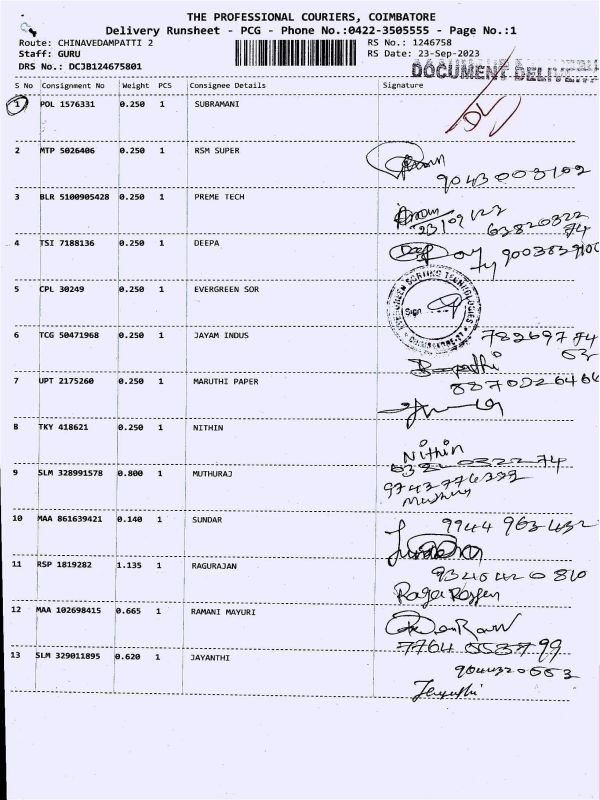 THE PROFESSIONAL COURIERS, COIMBATORE
Delivery Runsheet - PCG - Phone No.:0422-3505555 - Page No.:1
Route: CHINAVEDAMPATTI 2 RS No.: 1246758
Staff: GURU RS Date: 23-Sep-2023
DRS No.: DCJB124675801 DOCUMENT DELIVERY
S No Consignment No Weight PCS Consignee Details Signature
1 POL 1576331 0.250 1 SUBRAMANI DL
2 MTP 5026406 0.250 1 RSM SUPER
9043003102
3 BLR 5100905428 0.250 1 PREME TECH
23/09/23 63820322
74
4 TSI 7188136 0.250 1 DEEPA
5 CPL 30249 0.250 1 EVERGREEN SOR
EVERGREEN SORTING TECHNOLOGIES
Sign
6 TCG 50471968 0.250 1 JAYAM INDUS
7 UPT 2175260 0.250 1 MARUTHI PAPER
8 TKY 418621 0.250 1 NITHIN
Nithin
6382032274
9 SLM 328991578 0.800 1 MUTHURAJ
10 MAA 861639421 0.140 1 SUNDAR
9944 963 432
11 RSP 1819282 1.135 1 RAGURAJAN
9345420810
12 MAA 102698415 0.665 1 RAMANI MAYURI
13 SLM 329011895 0.620 1 JAYANTHI
Jayanthi